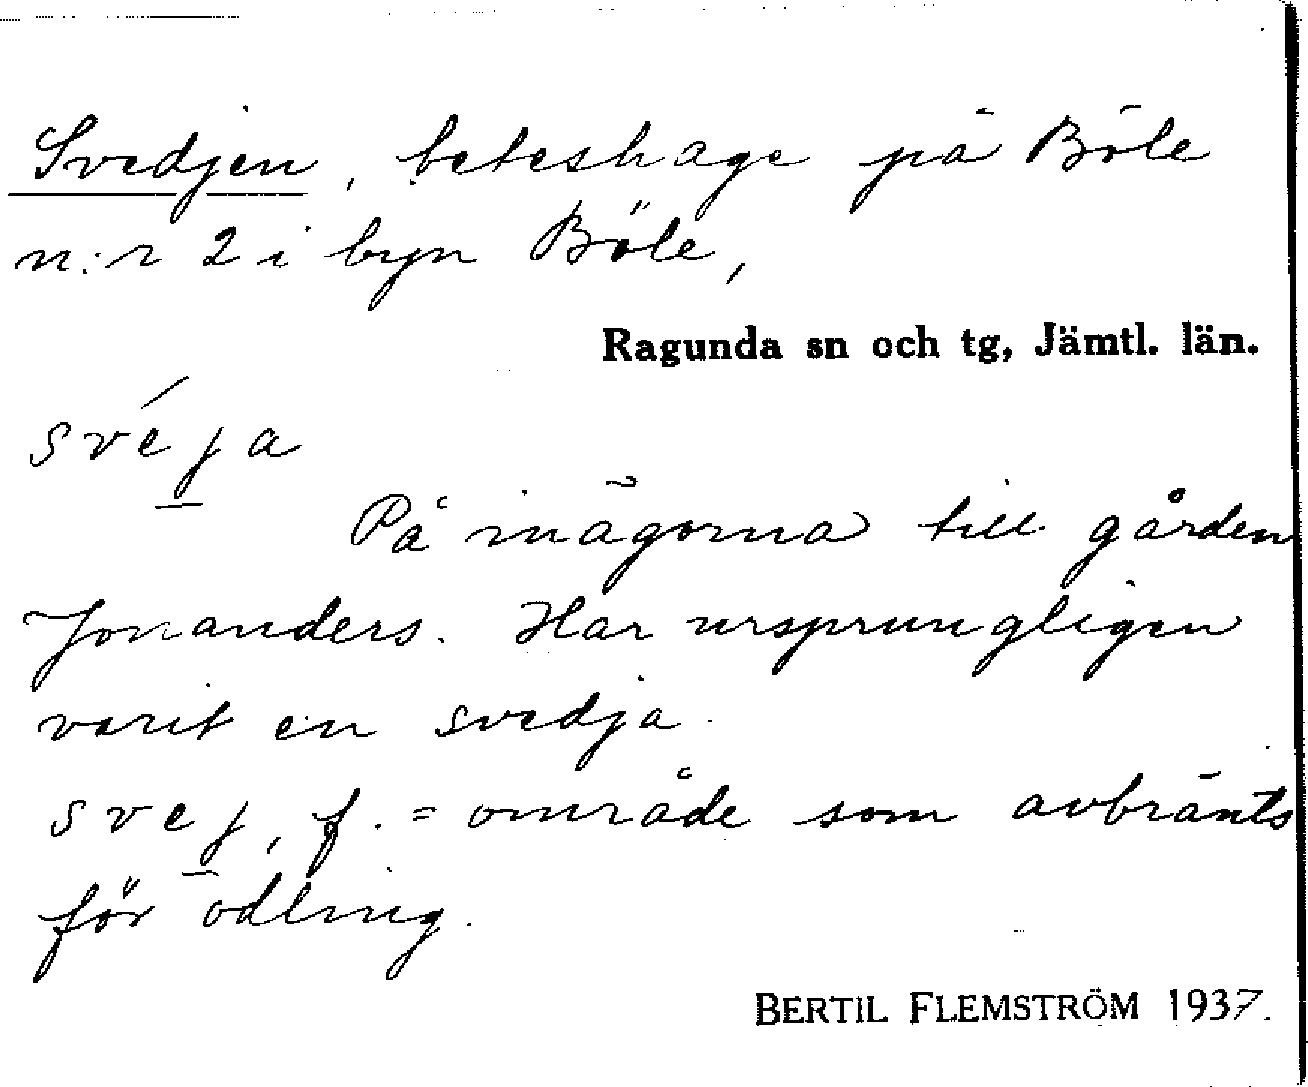 Svedjen, beteshage på Böle
n:r 2 i byn Böle,
Ragunda sn och tg, Jämtl. län.
svéja
På inägorna till gården
Jonanders. Har ursprungligen
varit en svedja.
svej, f. = område som avbränts
för odling.
BERTIL FLEMSTRÖM 1937.